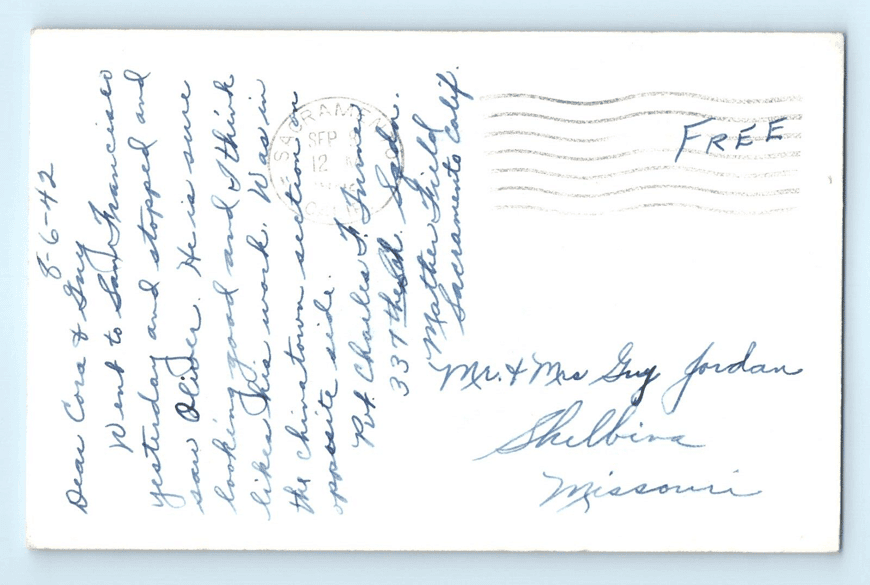 8-6-42
Dear Cora & Guy
Went to San Francisco
yesterday and stopped and
saw Oliver. He is sure
looking good and I think
likes his work. Was in
the chinatown section on
opposite side.
Pvt. Charles F.
337 the Sqdn.
Mather Field
Sacramento Calif.
SACRAMEN
SEP
12
FREE
Mr. & Mrs Guy Jordan
Shelbina
Missouri